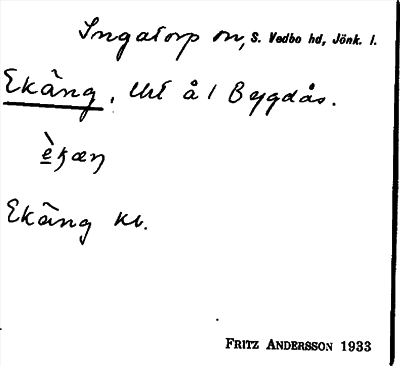 Ingatorp sn, S. Vedbo hd, Jönk. l.
Ekäng, Uht å 1 Bygdås.
Ekäng kt.
FRITZ ANDERSSON 1933